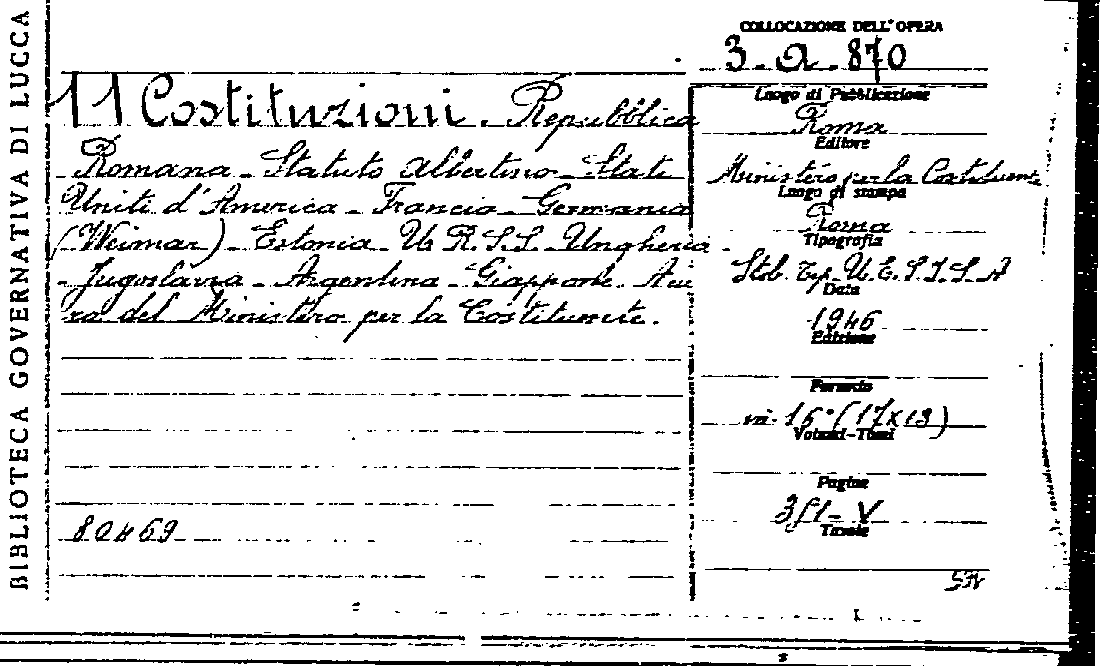 BIBLIOTECA GOVERNATIVA DI LUCCA
COLLOCAZIONE DELL'OPERA
3. a. 870
11 Costituzioni. Repubblica
Romana - Statuto Albertino - Stati
Uniti d'America - Francia - Germania
(Weimar) - Estonia - U.R.S.S. - Ungheria -
- Jugoslavia - Argentina - Giappone. A cu
ra del Ministero per la Costituente.
80469
Luogo di Pubblicazione
Roma
Editore
Ministero per la Costituente
Luogo di stampa
Roma
Tipografia
Stab. Tip. U.E.S.I.S.A
Data
1946
Edizione
Formato
in-16° (17x13)
Volumi-Tomi
Pagine
351-V
Tavole